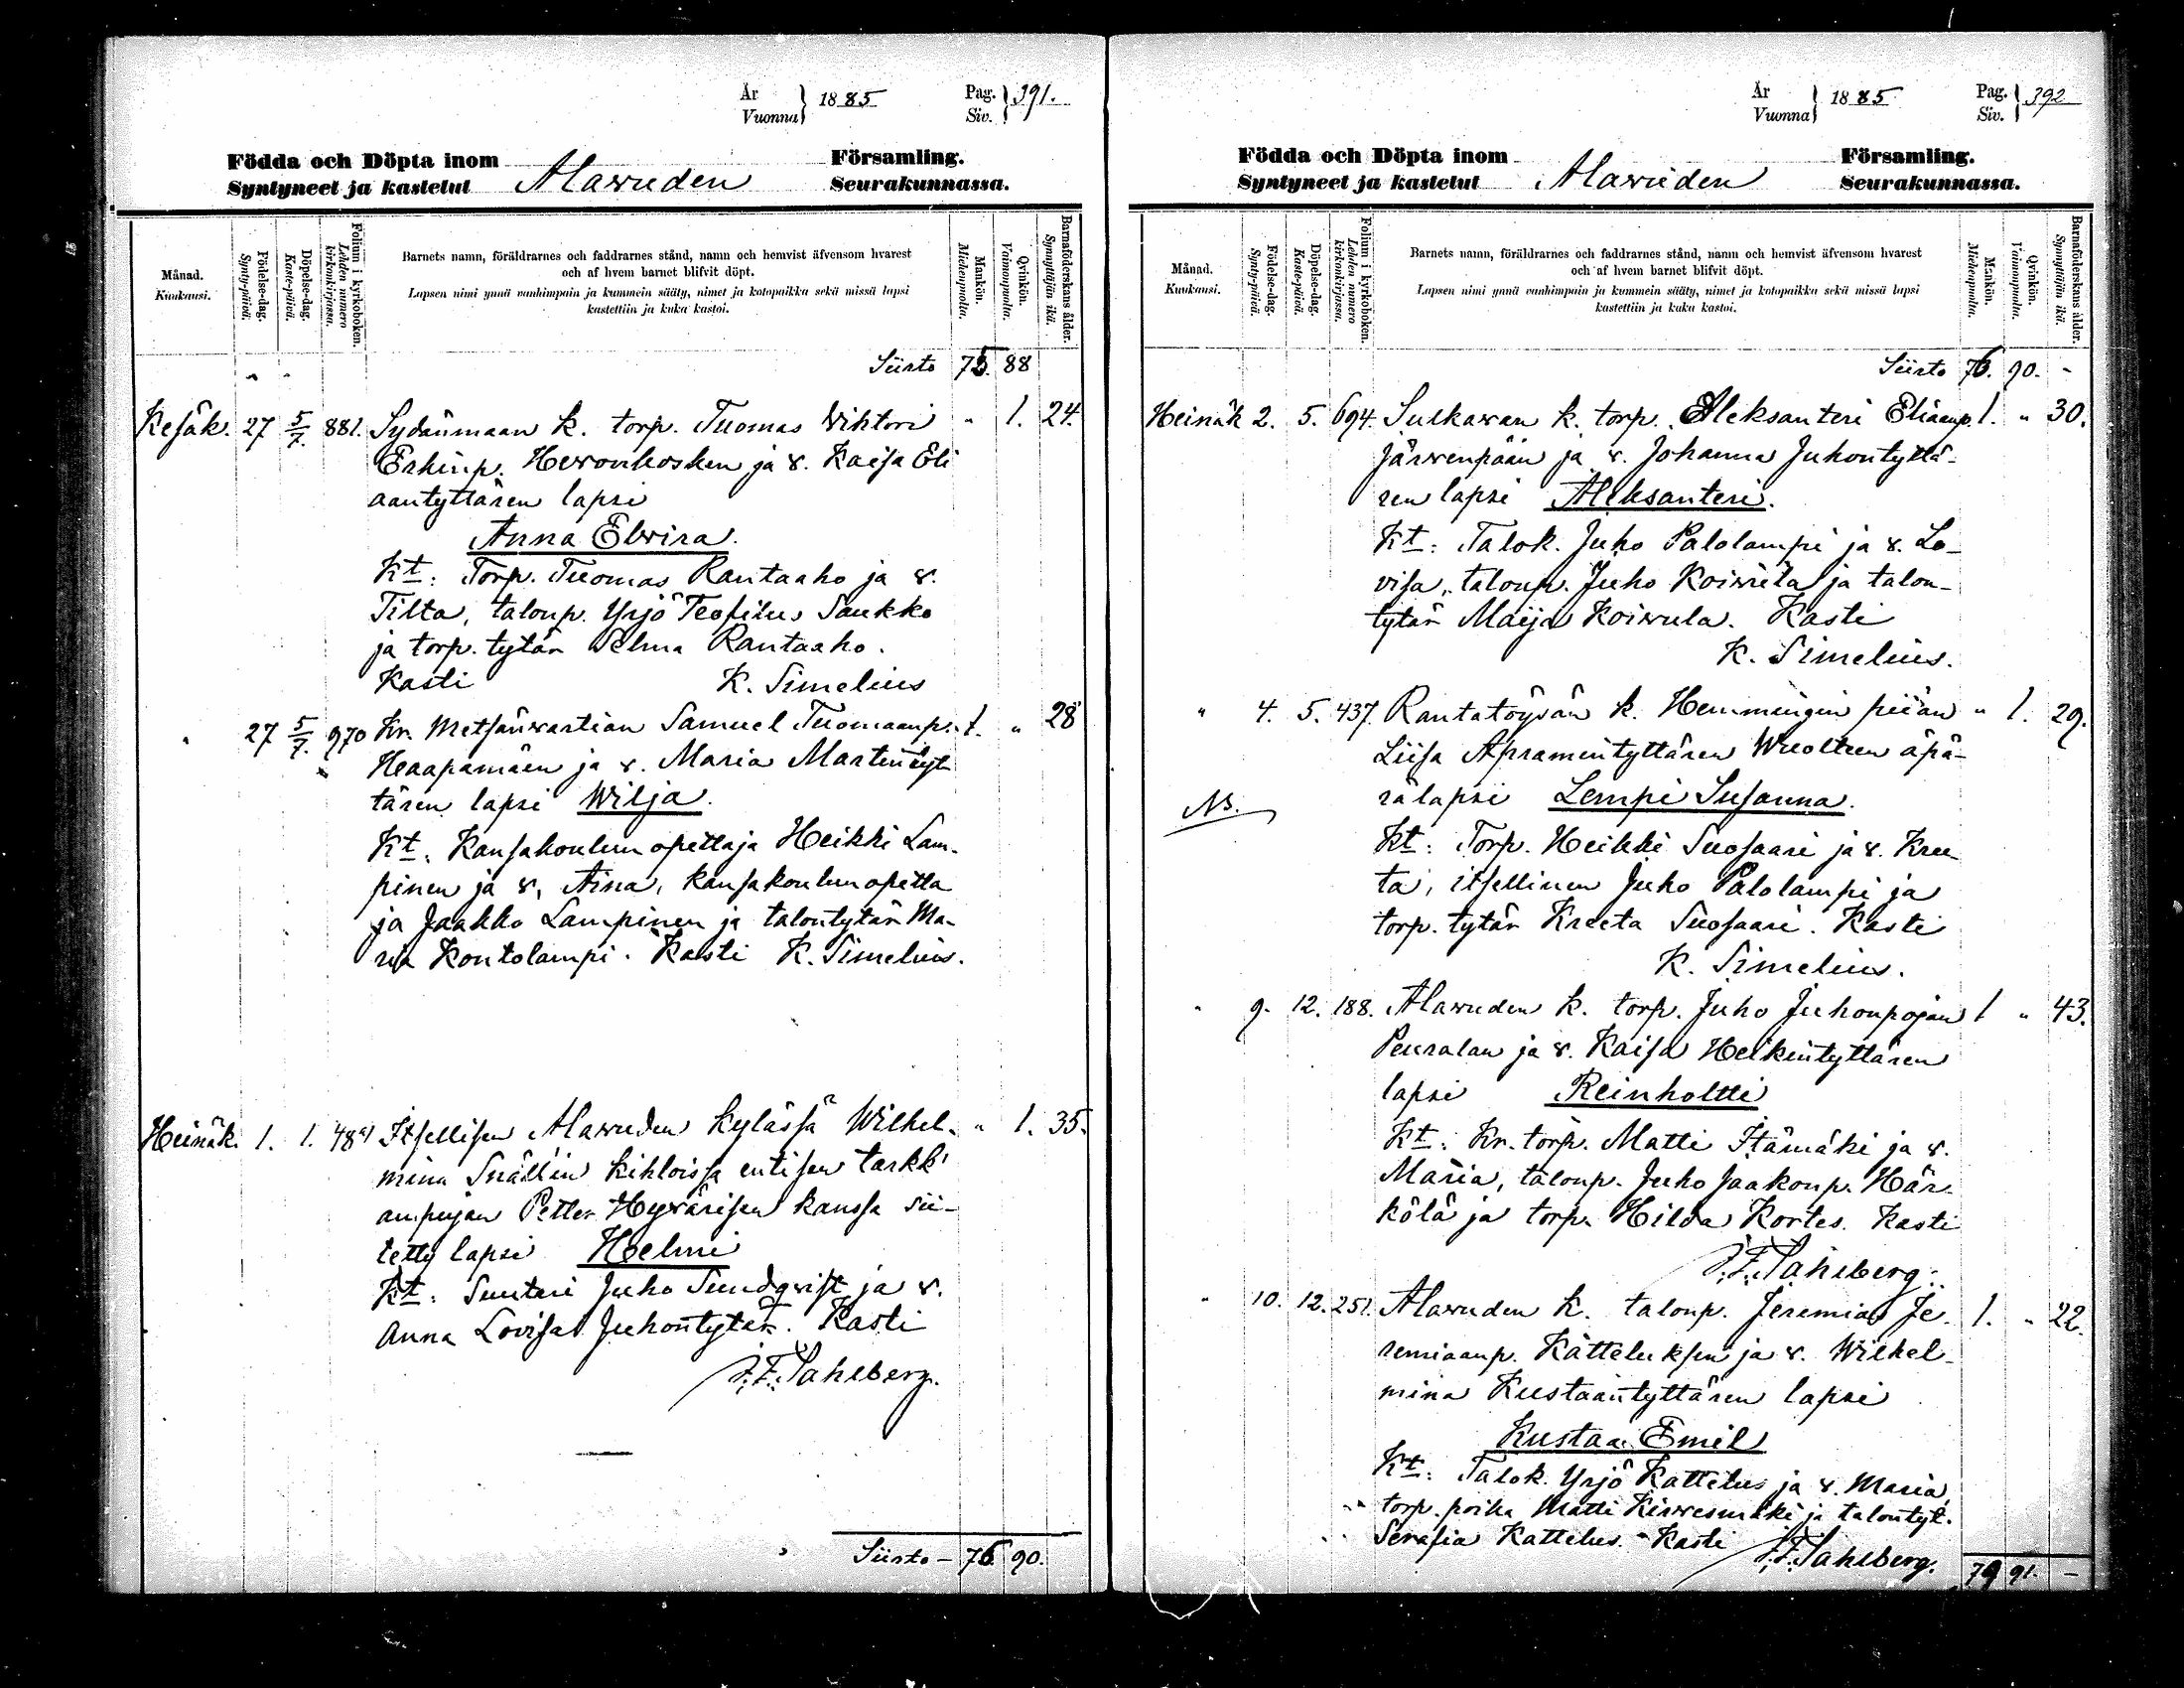 År Vuonna } 1885 Pag. Siv. } 391.
Födda och Döpta inom Församling.
Syntyneet ja kastetut Alawuden Seurakunnassa.
Månad. Kuukausi.
Födelse-dag. Synty-päivä.
Döpelse-dag. Kaste-päivä.
Folium i kyrkoboken. Lehden numero kirkonkirjassa.
Barnets namn, föräldrarnes och faddrarnes stånd, namn och hemvist äfvensom hvarest
och af hvem barnet blifvit döpt.
Lapsen nimi ynnä vanhimpain ja kummein sääty, nimet ja kotopaikka sekä missä lapsi
kastettiin ja kuka kastoi.
Mankön. Miehenpuolta.
Qvinkön. Vaimonpuolta.
Barnaföderskans ålder. Synnyttäjän ikä.
Siirto 75. 88
Kesäk. 27 5/7. 881. Sydänmaan k. torp. Tuomas Wihtori " 1. 24.
Erkinp. Hewonkosken ja v. Kaisa Eli
aantyttären lapsi
Anna Elwira.
Kt: Torp. Tuomas Rantaaho ja v.
Tilta, taloup. Yrjö Teofilus Saukko
ja torp. tytär Selma Rantaaho.
Kasti K. Simelius
" 27 5/7. 970 Kr. Metsänwartian Samuel Tuomaanp. 1. " 28
Haapamäen ja v. Maria Martintyt
tären lapsi Wilja.
Kt: Kansakoulun opettaja Heikki Lam-
pinen ja v. Aina, kansakoulun opetta
ja Jaakko Lampinen ja talontytär Ma-
ria Kontolampi. Kasti K. Simelius.
Heinäk. 1. 1. Itsellisen Alawuden kylässä Wilhel- " 1. 35.
mina Snällin kihloissa entisen tarkk'
ampujan Petter Hywärisen kanssa sii-
tetty lapsi Helmi
Kt: Suutari Juho Sundqvist ja v.
Anna Lovisa Juhontytär. Kasti
J. F. Sahlberg.
Siirto - 76 90.
År Vuonna } 1885 Pag. Siv. } 392
Födda och Döpta inom Församling.
Syntyneet ja kastetut Alawuden Seurakunnassa.
Månad. Kuukausi.
Födelse-dag. Synty-päivä.
Döpelse-dag. Kaste-päivä.
Folium i kyrkoboken. Lehden numero kirkonkirjassa.
Barnets namn, föräldrarnes och faddrarnes stånd, namn och hemvist äfvensom hvarest
och af hvem barnet blifvit döpt.
Lapsen nimi ynnä vanhimpain ja kummein sääty, nimet ja kotopaikka sekä missä lapsi
kastettiin ja kuka kastoi.
Mankön. Miehenpuolta.
Qvinkön. Vaimonpuolta.
Barnaföderskans ålder. Synnyttäjän ikä.
Siirto 76. 90. -
Heinäk 2. 5. 694. Sulkawan k. torp. Aleksanteri Eliaanp. 1. " 30.
Järwenpään ja v. Johanna Juhontyttä-
ren lapsi Aleksanteri.
Kt: Talok. Juho Palolampi ja v. Lo-
visa, taloup. Juho Koiwula ja talon-
tytär Maija Koiwula. Kasti
K. Simelius.
" 4. 5. 437. Rantatöysän k. Hemmingin piian " 1. 29.
Liisa Apramintyttären Wuolteen äpä-
NB. rälapsi Lempi Susanna.
Kt: Torp. Heikki Suosaari ja v. Kree
ta, itsellinen Juho Palolampi ja
torp. tytär Kreeta Suosaari. Kasti
K. Simelius.
" 9. 12. 188. Alawuden k. torp. Juho Juhonpojan 1 " 43.
Peuralan ja v. Kaisa Heikintyttären
lapsi Reinholtti
Kt: Kr. torp. Matti Itämäki ja v.
Maria, taloup. Juho Jaakonp. Här-
kölä ja torp. Hilda Kortes. Kasti
J. F. Sahlberg.
" 10. 12. 251. Alawuden k. taloup. Jeremias Je- 1. " 22.
remiaanp. Kätteluksen ja v. Wilhel-
mina Kustaantyttären lapsi
Kustaa Emil
Kt: Talok. Yrjö Kattelus ja v. Maria,
torp. poika Matti Kirwesmäki ja talontyt.
Serafia Kattelus. Kasti J. F. Sahlberg.
79 91. -